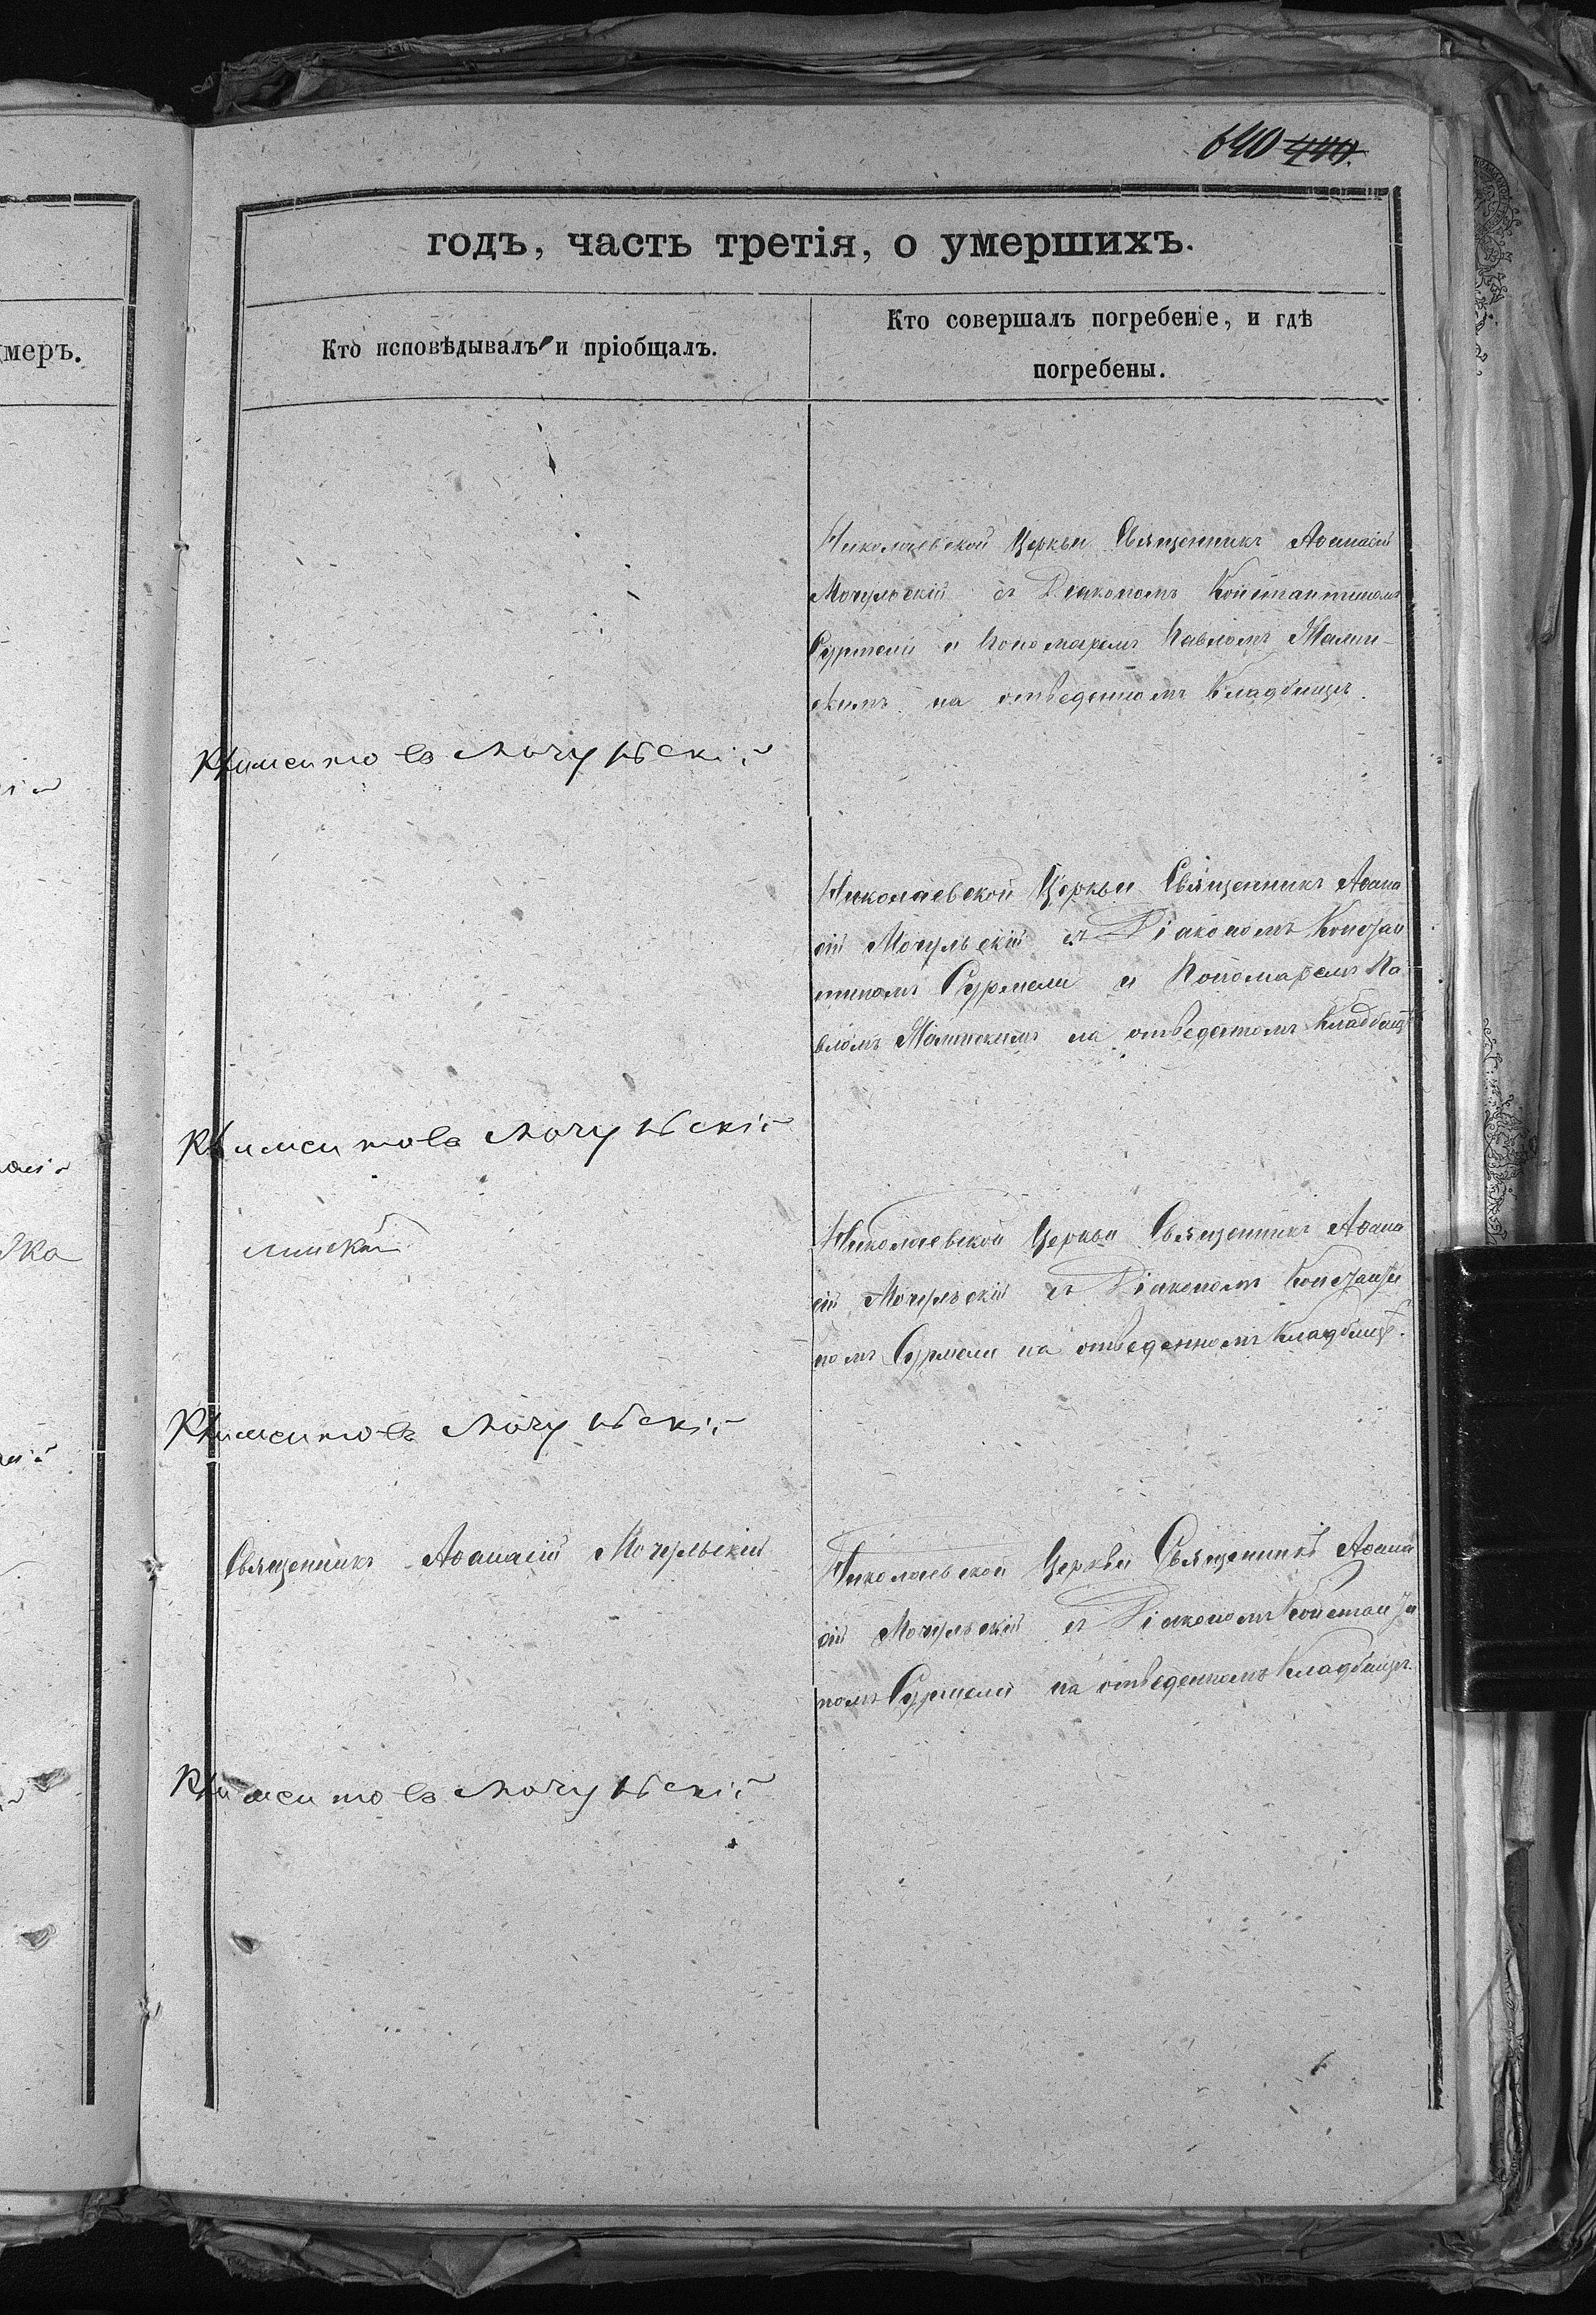 640 440.
годъ, часть третія, о умершихъ.
меръ.
Кто исповѣдывалъ и пріобщалъ.
Кто совершалъ погребеніе, и гдѣ
погребены.
Николаевской Церкви Священникъ Аѳанасій
Мочульскій съ Діакономъ Константиномъ
Сурмели и Пономаремъ Павломъ
скимъ на отведенномъ Кладбищѣ.
Мочульскій
Николаевской Церкви Священникъ Аѳана
сій Мочульскій съ Діакономъ Констан
тиномъ Сурмели и Пономаремъ Па
вломъ на отведенномъ Кладбищѣ
Мочульскій
Николаевской Церкви Священникъ Аѳана
сій Мочульскій съ Діакономъ Константи
номъ Сурмели на отведенномъ Кладбищѣ.
Мочульскій
Священникъ Аѳанасій Мочульскій
Николаевской Церкви Священникъ Аѳана
сій Мочульскій съ Діакономъ Константи
номъ Сурмели на отведенномъ Кладбищѣ.
Мочульскій